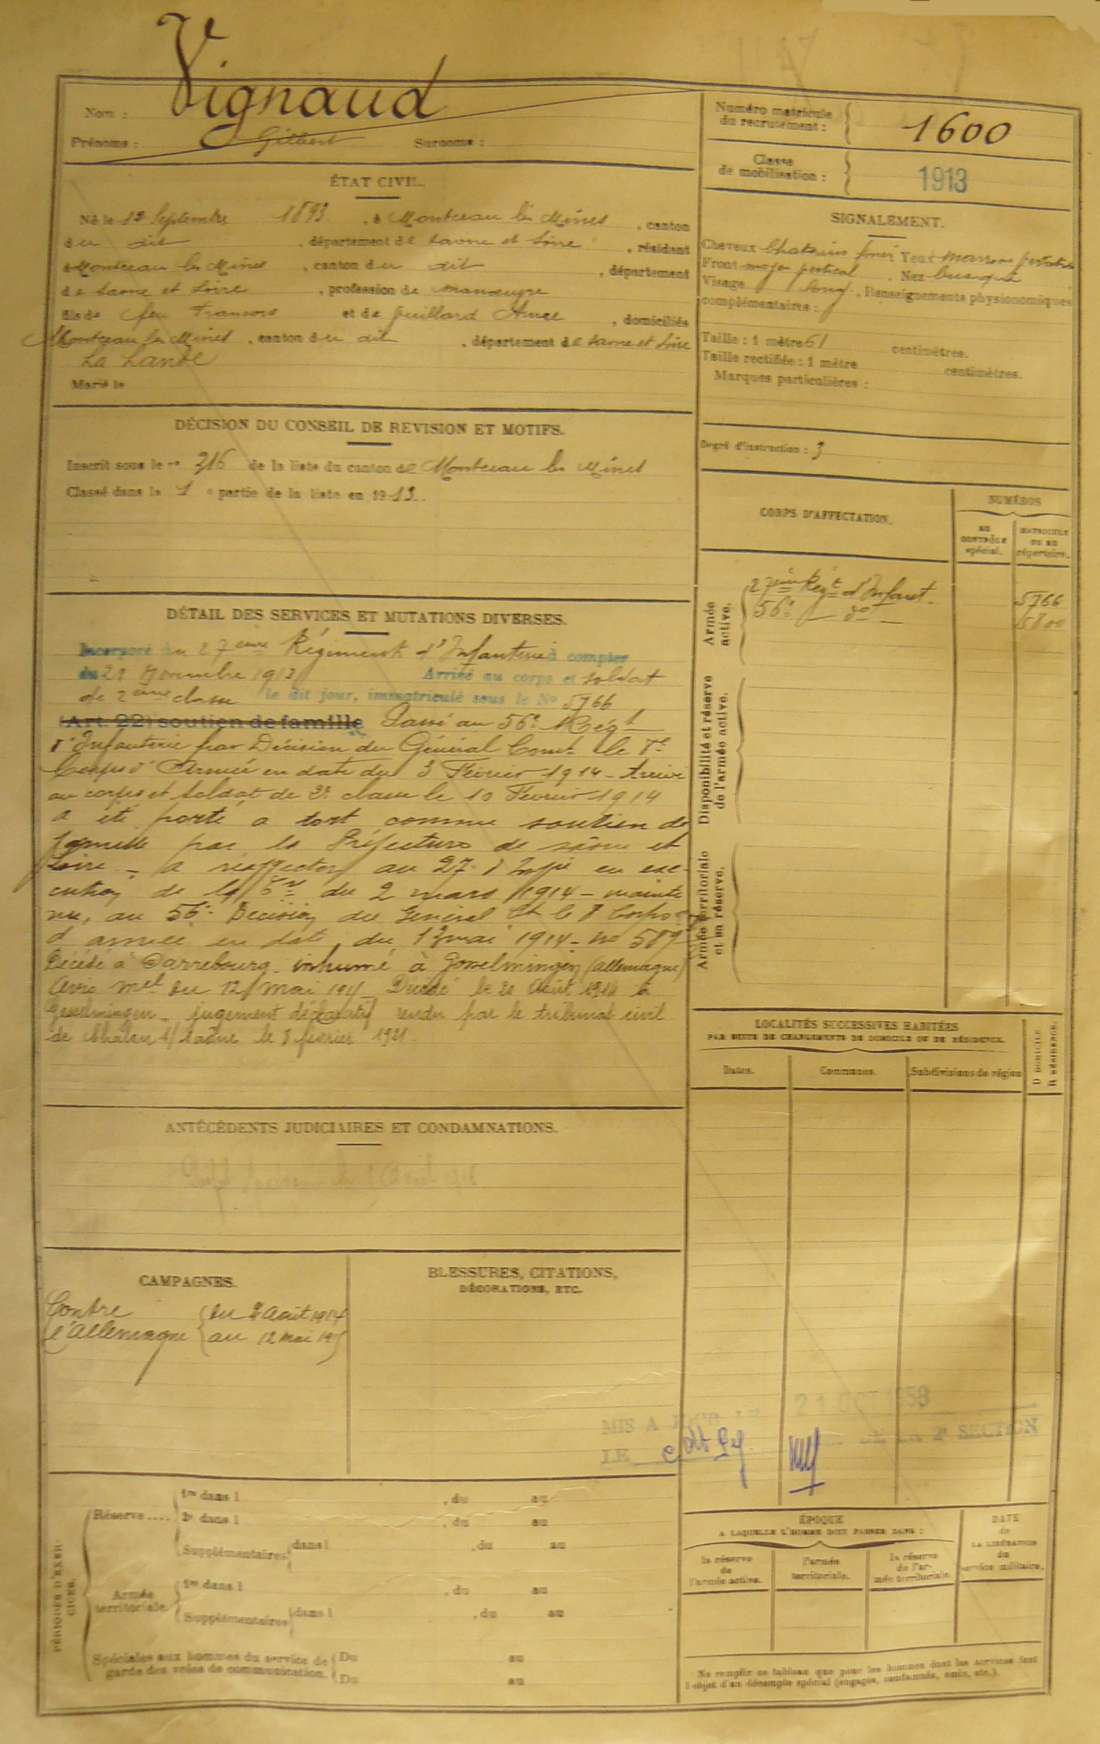 Nom : Vignaud
Prénoms : Gilbert Surnoms :
Numéro matricule du recrutement : 1600
Classe de mobilisation : 1913
ÉTAT CIVIL.
Né le 13 Septembre 1893, à Montceau les Mines, canton
du dit, département de Saône et Loire, résidant
à Montceau les Mines, canton du dit, département
de Saône et Loire, profession de manœuvre
fils de feu François et de Guillard Anne, domiciliés
Montceau les Mines, canton du dit, département de Saône et Loire
La Lande
Marié le
SIGNALEMENT.
Cheveux Chatains foncé Yeux marrons
Front moyen vertical Nez busqué
Visage long Renseignements physionomiques
complémentaires :
Taille : 1 mètre 61 centimètres.
Taille rectifiée : 1 mètre centimètres.
Marques particulières :
Degré d'instruction : 3
DÉCISION DU CONSEIL DE REVISION ET MOTIFS.
Inscrit sous le n° 316 de la liste du canton de Montceau les Mines
Classé dans la 1e partie de la liste en 1913.
DÉTAIL DES SERVICES ET MUTATIONS DIVERSES.
Incorporé au 27eme Régiment d'Infanterie à compter
du 27 Novembre 1913 Arrivé au corps et soldat
de 2eme classe le dit jour, immatriculé sous le No 5766
(Art. 22) soutien de famille Passé au 56e Régt
d'Infanterie par Décision du Général Comt le 8e
Corps d'Armée en date du 3 Février 1914 - Arrivé
au corps et soldat de 2e classe le 10 Février 1914
a été porté à tort comme soutien de
famille par la Préfecture de Saône et
Loire - a réaffecter au 27e d'Infie en exé-
cution de la du 2 mars 1914 - mainte
nu, au 56e Décision du Général Ct le 8 Corps
d'armée en date du 13 mai 1914 - no 589
Décédé à Sarrebourg - inhumé à Gosselmingen (allemagne)
Avis mel du 12 mai 191 Décédé le 20 Août 1914 à
Gosselmingen - jugement déclaratif rendu par le tribunal civil
de Chalon s/ Saône le 8 février 1921.
CORPS D'AFFECTATION.
NUMÉROS
AU CONTRÔLE spécial.
MATRICULE OU AU répertoire.
Armée active.
27eme Régt d'Infant. 5766
56e do 5800
Disponibilité et réserve de l'armée active.
Armée territoriale et sa réserve.
LOCALITÉS SUCCESSIVES HABITÉES
PAR SUITE DE CHANGEMENTS DE DOMICILE OU DE RÉSIDENCE.
Dates. Communes. Subdivisions de région D DOMICILE. R RÉSIDENCE.
ANTÉCÉDENTS JUDICIAIRES ET CONDAMNATIONS.
CAMPAGNES.
Contre l'Allemagne
du 2 Août 1914
au 12 mai 19
BLESSURES, CITATIONS,
DÉCORATIONS, ETC.
MIS A JOUR LE 21 OCT 1953
LE DE LA 2e SECTION
PÉRIODES D'EXERCICES.
Réserve....
1re dans l , du au
2e dans l , du au
Supplémentaires dans l , du au
Armée territoriale
1re dans l , du au
Supplémentaires dans l , du au
Spéciales aux hommes du service de garde des voies de communication.
Du au
Du au
ÉPOQUE
A LAQUELLE L'HOMME DOIT PASSER DANS :
la réserve de l'armée active.
l'armée territoriale.
la réserve de l'armée territoriale
DATE de LA LIBÉRATION du service militaire.
Ne remplir ce tableau que pour les hommes dont les services font
l'objet d'un décompte spécial (engagés, condamnés, omis, etc.).